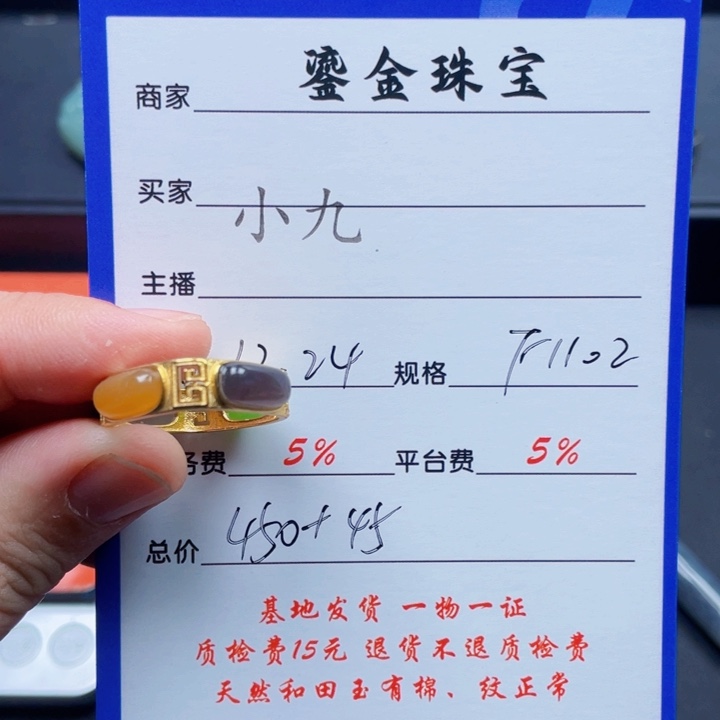 商家 鎏金珠宝
买家 小九
主播
12 24 规格 Fr11.02
务费 5% 平台费 5%
总价 450+45
基地发货 一物一证
质检费15元 退货不退质检费
天然和田玉有棉、纹正常